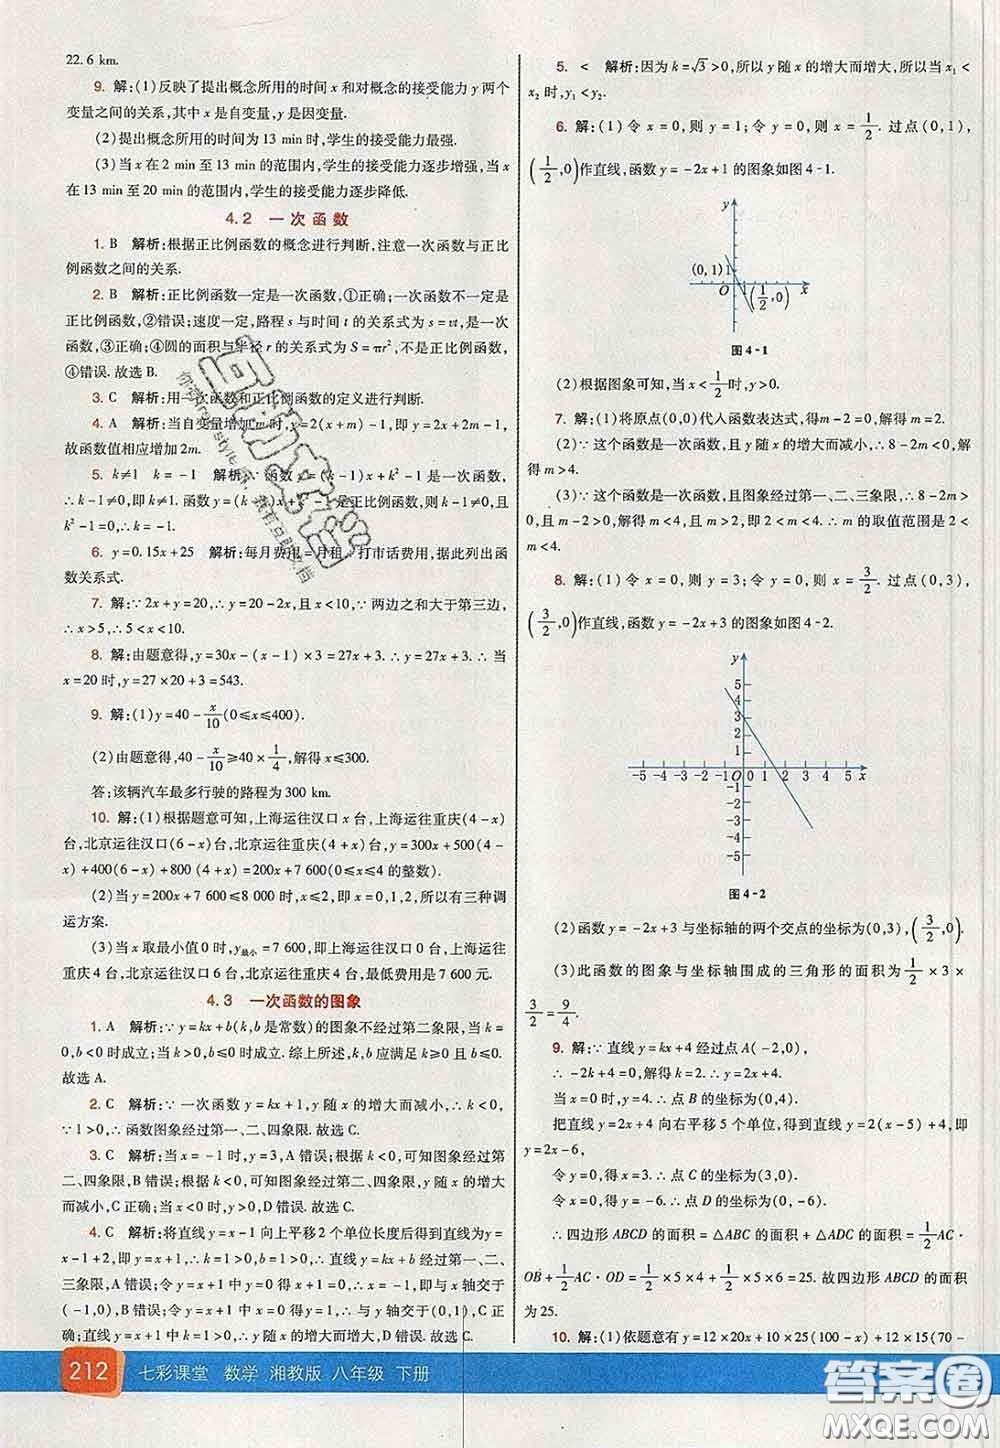 22. 6 km.
9. 解:(1)反映了提出概念所用的时间 x 和对概念的接受能力 y 两个
变量之间的关系,其中 x 是自变量,y 是因变量.
(2)提出概念所用的时间为 13 min 时,学生的接受能力最强.
(3)当 x 在 2 min 至 13 min 的范围内,学生的接受能力逐步增强.当 x
在 13 min 至 20 min 的范围内,学生的接受能力逐步降低.
4.2 一次函数
1. B 解析:根据正比例函数的概念进行判断,注意一次函数与正比
例函数之间的关系.
2. B 解析:正比例函数一定是一次函数,①正确;一次函数不一定是正比例函
数,②错误;速度一定,路程 s 与时间 t 的关系式为 s=vt,是一次函
数,③正确;④圆的面积与半径 r 的关系式为 S=πr²,不是正比例函数,
④错误.故选 B.
3. C 解析:用一次函数和正比例函数的定义进行判断.
4. A 解析:当自变量增加 m 时,y=2(x+m)-1,即 y=2x+2m-1,
故函数值相应增加 2m.
5. k≠1 k=-1 解析:∵函数 y=(k-1)x+k²-1 是一次函数,
∴k-1≠0,即 k≠1.函数 y=(k-1)x+k²-1 是正比例函数,则 k-1≠0,且
k²-1=0,∴k=-1.
6. y=0.15x+25 解析:每月费用=月租+打市话费用,据此列出函
数关系式.
7. 解:∵2x+y=20,∴y=20-2x,即 x<10,∵两边之和大于第三边,
∴x>5,∴5<x<10.
8. 解:由题意得,y=30x-(x-1)×3=27x+3,∴y=27x+3.∴当
x=20 时,y=27×20+3=543.
9. 解:(1)y=40-x/10(0≤x≤400).
(2)由题意得,40-x/10≥40×1/4,解得 x≤300.
答:该辆汽车最多行驶的路程为 300 km.
10. 解:(1)根据题意可知,上海运往汉口 x 台,上海运往重庆(4-x)
台,北京运往汉口(6-x)台,北京运往重庆(4+x)台,y=300x+500(4-
x)+400(6-x)+800(4+x)=200x+7 600(0≤x≤4 的整数).
(2)当 y=200x+7 600≤8 000 时,x=0,1,2,所以有三种调
运方案.
(3)当 x 取最小值 0 时,y最小=7 600,即上海运往汉口 0 台,上海运往
重庆 4 台,北京运往汉口 6 台,北京运往重庆 4 台,最低费用是 7 600 元.
4.3 一次函数的图象
1. A 解析:∵y=kx+b(k,b 是常数)的图象不经过第二象限,当 k=
0,b<0 时成立;当 k>0,b≤0 时成立.综上所述,k,b 应满足 k≥0,b≤0.
故选 A.
2. C 解析:∵一次函数 y=kx+1,y 随 x 的增大而减小,∴k<0,
∵1>0,∴函数图象经过第一、二、四象限.故选 C.
3. C 解析:当 x=-1 时,y=3,A 错误;根据性质可知图象经过第
二、四象限,B 错误;y 随 x 的增大
而减小,C 正确,D 错误.故选 C.
4. C 解析:将直线 y=x-1 向上平移 2 个单位长度后得到直线 y=
x-1+2,即 y=x+1,∵k=1>0,b=1>0,∴直线 y=x+1 经过第一、二、
三象限,A 错误;令 y=x+1 中 y=0 得 x=-1,即与 x 轴交于
(-1,0),B 错误;令 y=x+1 中 x=0 得 y=1,∴与 y 轴交于(0,1),C 正
确;直线 y=x+1 中 k=1>0,∴y 随 x 的增大而增大,D 错误.故选 C.
212 七彩课堂 数学 湘教版 八年级 下册
5. < 解析:因为 k=√3>0,所以 y 随 x 的增大而增大,所以当 x₁<
x₂ 时,y₁<y₂.
6. 解:(1)令 x=0,则 y=1;令 y=0,则 x=1/2.过点(0,1),
(1/2,0)作直线,函数 y=-2x+1 的图象如图 4-1.
y
(0,1) 1
O 1 (1/2,0) x
图 4-1
(2)根据图象可知,当 x<1/2时,y>0.
7. 解:(1)将原点(0,0)代入函数表达式,得 m-2=0,解得 m=2.
(2)∵这个函数是一次函数,且 y 随 x 的增大而减小,∴8-2m<0,解
得 m>4.
(3)∵这个函数是一次函数,且图象经过第一、二、三象限,∴8-2m>
0,且 m-2>0,解得 m<4,且 m>2,即 2<m<4.∴m 的取值范围是 2<
m<4.
8. 解:(1)令 x=0,则 y=3;令 y=0,则 x=3/2.过点(0,3),
(3/2,0)作直线,函数 y=-2x+3 的图象如图 4-2.
y
5
4
3
2
1
-5 -4 -3 -2 -1 O 1 2 3 4 5 x
-1
-2
-3
-4
-5
图 4-2
(2)函数 y=-2x+3 与坐标轴的两个交点的坐标为(0,3),(3/2,0).
(3)此函数的图象与坐标轴围成的三角形的面积为1/2×3×
3/2=9/4.
9. 解:∵直线 y=kx+4 经过点 A(-2,0),
∴-2k+4=0.解得 k=2.∴y=2x+4.
当 x=0 时,y=4.∴点 B 的坐标为(0,4).
把直线 y=2x+4 向右平移 5 个单位,得到直线 y=2(x-5)+4,即
y=2x-6.
令 y=0,得 x=3.∴点 C 的坐标为(3,0).
令 x=0,得 y=-6.∴点 D 的坐标为(0,-6).
∴四边形 ABCD 的面积=△ABC 的面积+△ADC 的面积=1/2AC·
OB+1/2AC·OD=1/2×5×4+1/2×5×6=25.故四边形 ABCD 的面积
为 25.
10. 解:(1)依题意有 y=12×20x+10×25(100-x)+12×15(70-
答案圈
MXQE.COM